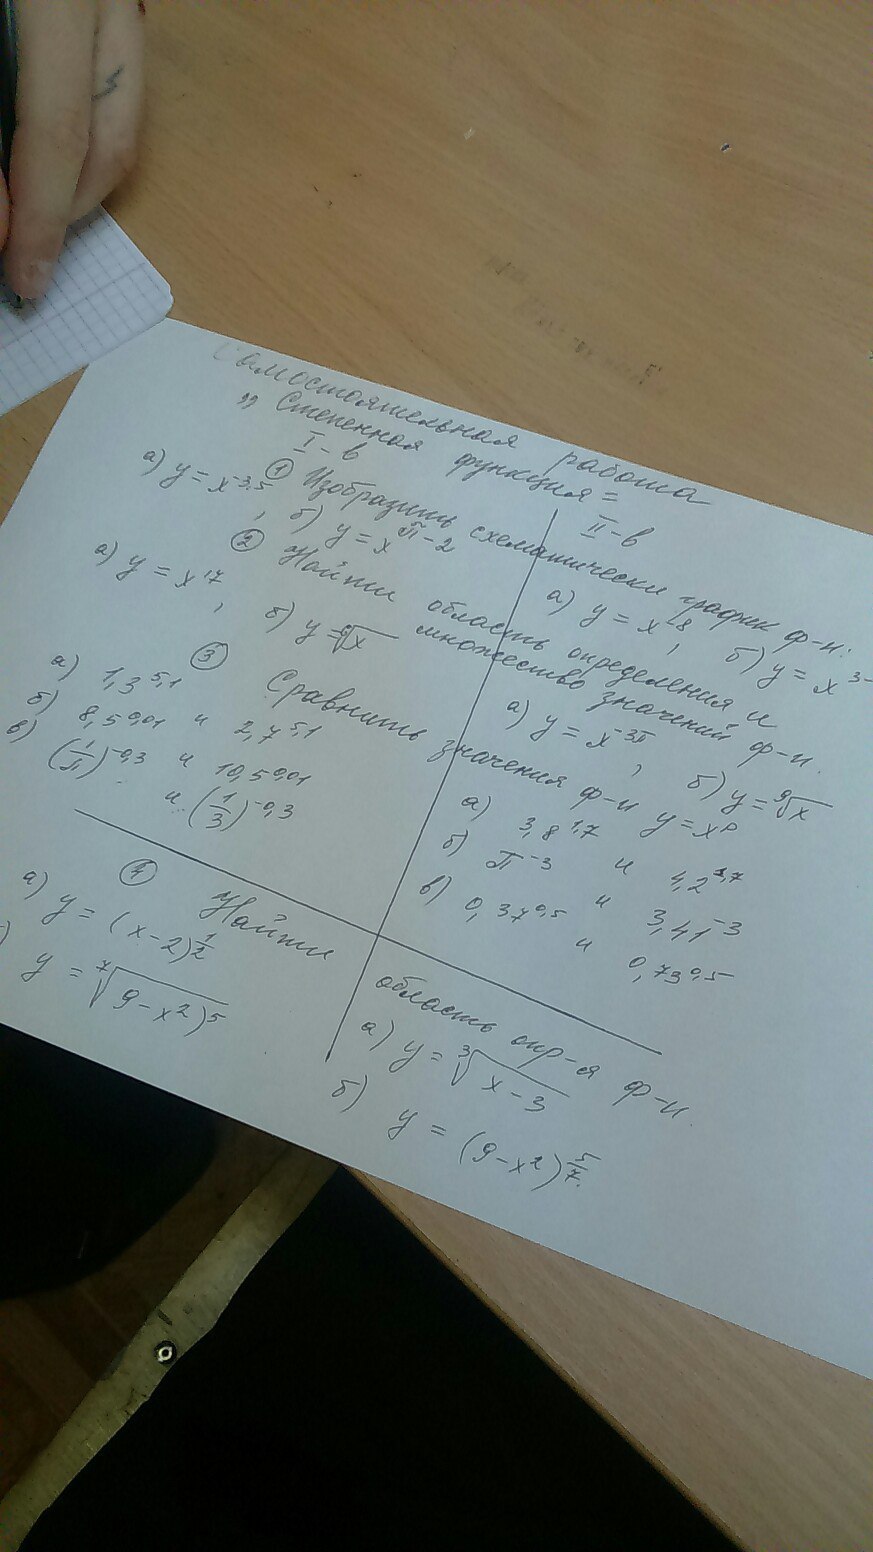 Самостоятельная работа
„Степенная функция=
I-в
II-в
① Изобразить схематически график ф-и:
а) y = x^-3,5, б) y = x^π-2
а) y = x^-8, б) y = x^3-
② Найти область определения и
множество значений ф-и.
а) y = x^17, б) y = ⁸√x
а) y = x^-3π, б) y = ⁹√x
③ Сравнить значения ф-и y = x^p
а) 1,3^5,1 и 2,7^5,1
б) 8,5^0,01 и 10,5^0,01
в) (1/π)^-0,3 и (1/3)^-0,3
а) 3,8^1,7 и 4,2^1,7
б) π^-3 и 3,41^-3
в) 0,37^0,5 и 0,73^0,5
④ Найти область опр-я ф-и.
а) y = (x-2)^1/2
) y = ⁷√9-x²)^5
а) y = ³√x-3
б) y = (9-x²)^5/7.